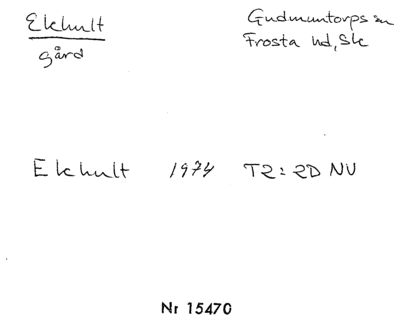 Ekhult
gård
Gudmuntorps sn
Frosta hd, Sk
Ekhult 1974 T2: 2D NV
Nr 15470